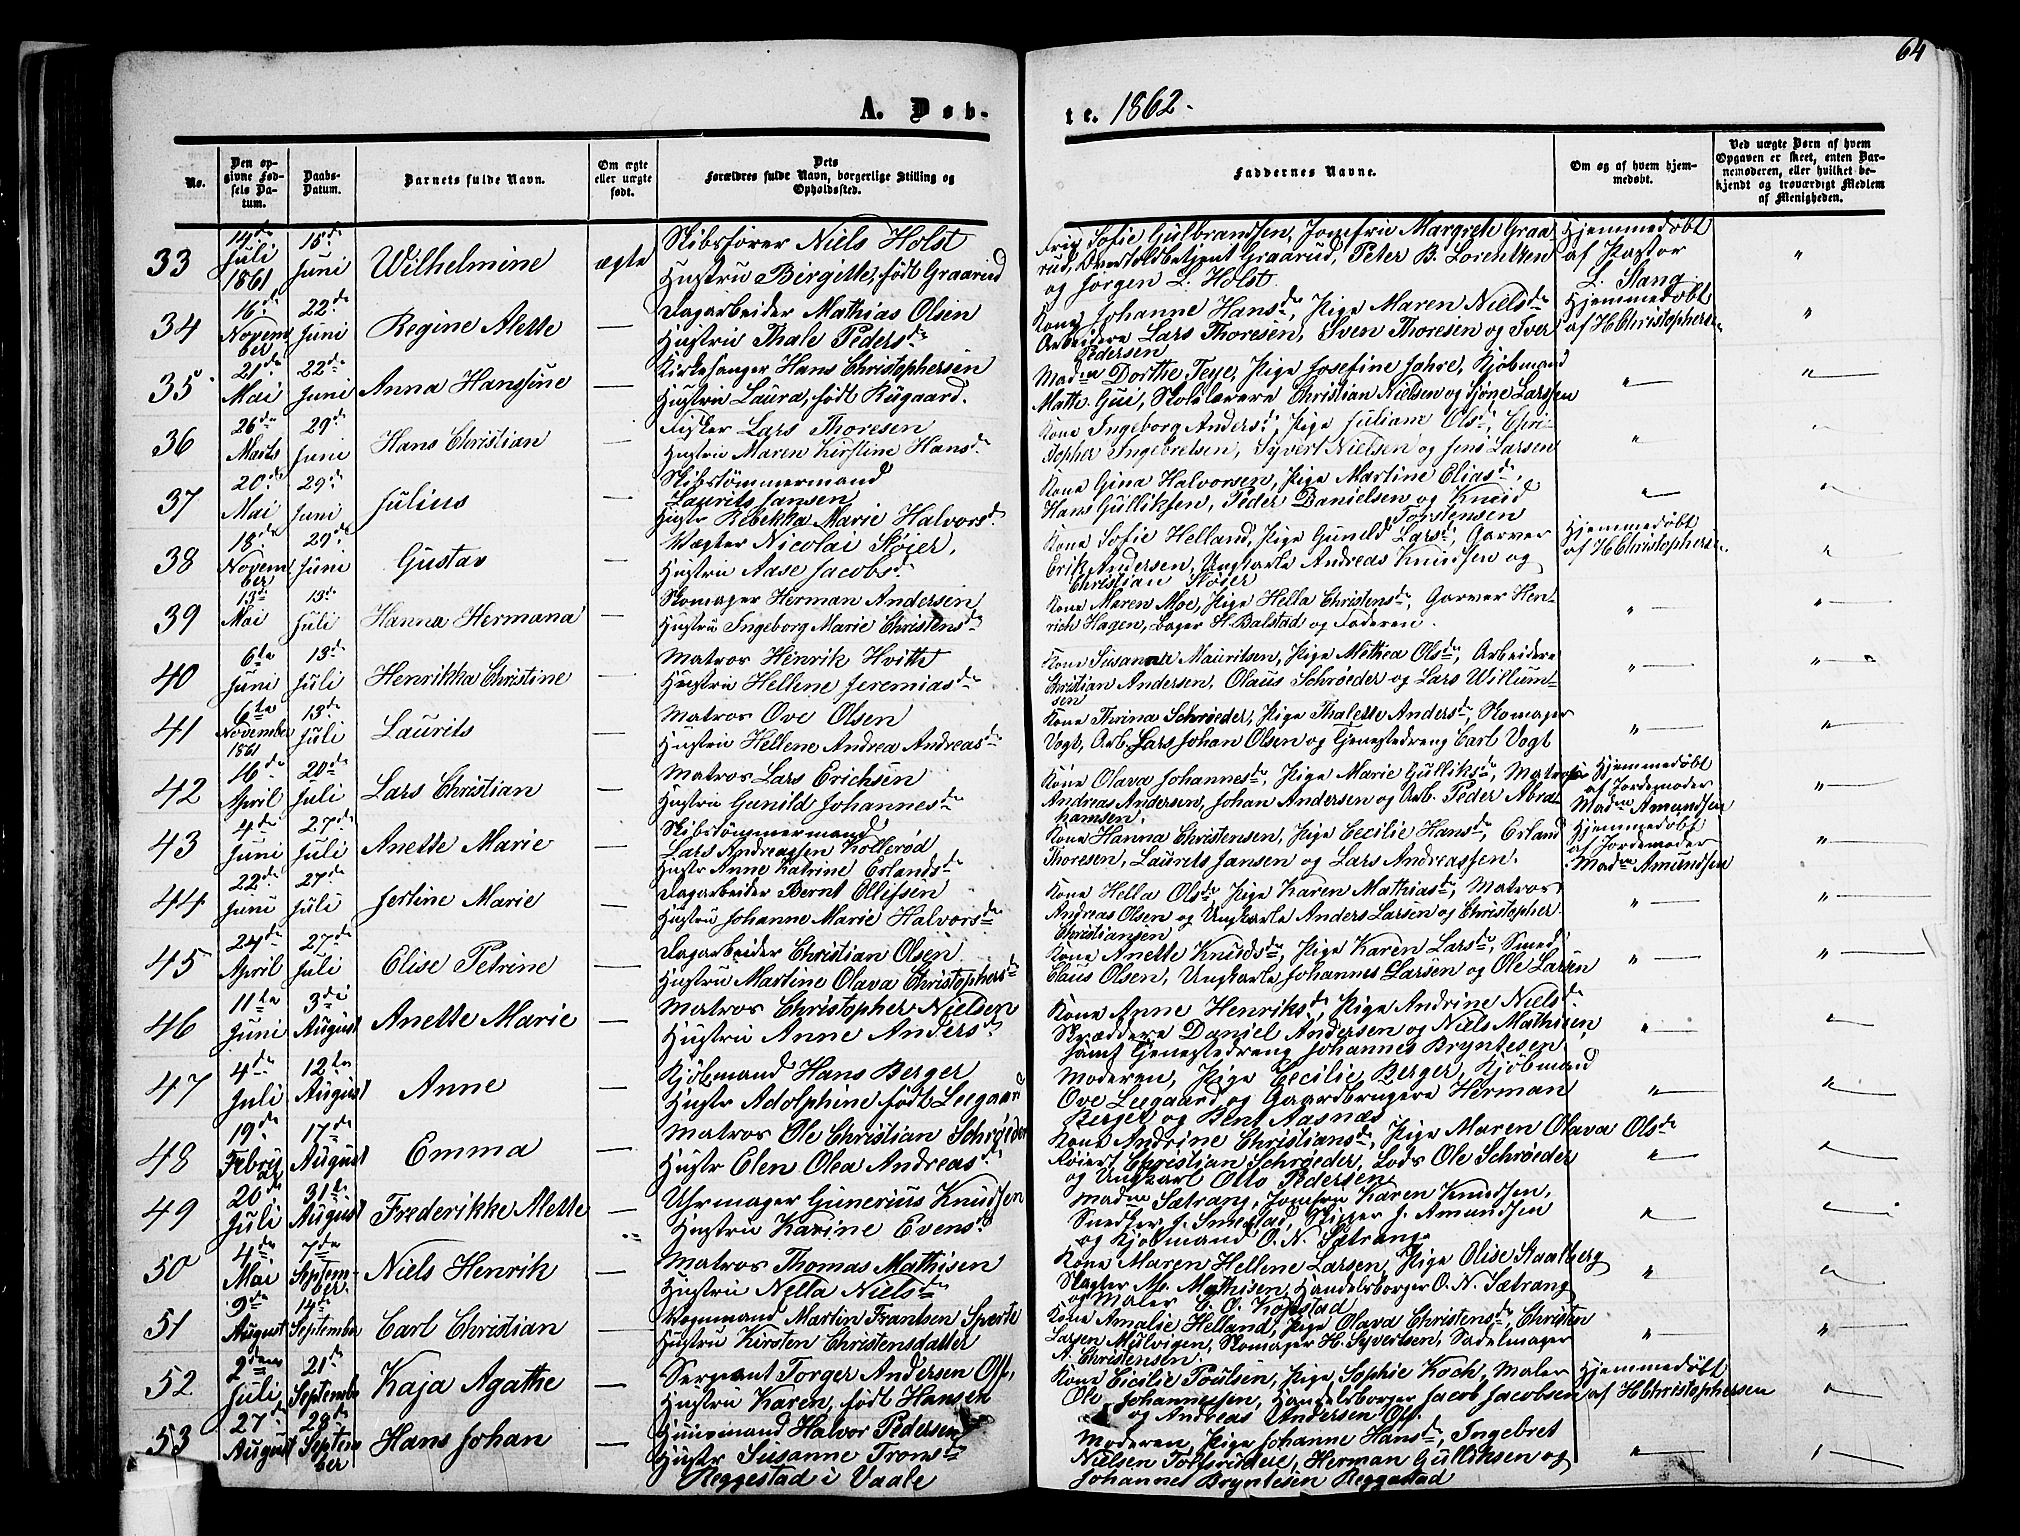 64
A. Døb-
te. 1862.
No.
Den op-
givne Fød-
sels Da-
tum.
Daabs-
Datum.
Barnets fulde Navn.
Om ægte
eller uægte
født.
Dets
Forældres fulde Navn, borgerlige Stilling og
Opholdssted.
Faddernes Navne.
Om og af hvem hjem-
medøbt.
Ved uægte Børn af hvem
Opgaven er skeet, enten Bar-
nemoderen, eller hvilket be-
kjendt og troværdigt Medlem
af Menigheden.
33 14de Juli 1861 15de Juni Wilhelmine ægte
Skibsfører Niels Holst
Hustru Birgitte, født Graarud
Fru Sofie Gulbrandsen, Jomfru Margrete Graa
rud, Overtoldbetjent Graarud, Peter B. Lorentzen
og Jørgen L. Holst.
Hjemmedøbt
af Pastor
L. Stang
"
34 16de Novem ber 22de Juni Regine Alette —
Dagarbeider Mathias Olsen
Hustru Thale Pedersdr
Kone Johanne Hansdr, Pige Maren Nielsdr
Arbeidere Lars Thoresen, Sven Thoresen og Iver
Pedersen
Hjemmedøbt
af HChristophersen
"
35 21de Mai 22de Juni Anna Hansine —
Kirkesanger Hans Christophersen
Hustru Laura, født Rugaard.
Madme Dorthe Teye, Pige Josefine Jahre, Kjøbmand
Math. Gui, Skolelærere Christian Nielsen og Tjøne Larssen
" —
" —
36 26de Marts 29de Juni Hans Christian —
Fisker Lars Thoresen
Hustru Maren Kirstine Hansdr
Kone Ingeborg Andersdr, Pige Juliane Olsdr, Chri-
stopher Ingebretsen, Syvert Nielsen og Jens Larsen
" —
" —
37 20de Mai 29de Juni Julius —
Skibstømmermand
Laurits Jansen
Hustr Rebekka Marie Halvorsdr
Kone Gina Halvorsen, Pige Martine Eliasdr,
Hans Gulliksen, Peder Danielsen og Knud
Torstensen
" —
" —
38 18de Novem ber 29de Juni Gustav —
Vægter Nicolai Støier,
Hustru Aase Jacobsdr
Kone Sofie Helland, Pige Gunild Larsdr, Garver
Erik Andersen, Ungkarle Andreas Knudsen og
Christian Støier
Hjemmedøbt
af HChristophersen.
" —
39 13de Mai 13de Juli Hanna Hermana —
Skomager Herman Andersen
Hustru Ingeborg Marie Christensdr
Kone Maren Moe, Pige Hella Christensdr, Garver Hen-
rich Hagen, Bager H. Balstad og Faderen.
" —
" —
40 6te Juni 13de Juli Henrikka Christine —
Matros Henrik Hvitte
Hustru Hellene Jeremiasdr
Kone Susanne Mauritsen, Pige Mathea Olsdr, Arbeidere
Christian Andersen, Olaus Schrøeder og Lars Willum-
sen
" —
" —
41 6te November 1861 13de Juli Laurits —
Matros Ove Olsen
Hustru Hellene Andrea Andreasdr
Kone Thrina Schrøeder, Pige Thalette Andersdr, Skomager
Vogt, Arb. Lars Johan Olsen og Tjenestedreng Carl Vogt
" —
" —
42 16de April 20de Juli Lars Christian —
Matros Lars Erichsen
Hustru Gunild Johannesdr
Kone Olava Johannesdr, Pige Marie Gulliksdr, Matroser
Andreas Andersen, Johan Andersen og Arb. Peder Abra-
hamsen.
Hjemmedøbt
af Jordemoder
Madme Amundsen
" —
43 4de Juni 27de Juli Anette Marie —
Skibstømmermand
Lars Andreassen Kollerød
Hustr Anne Katrine Erlandsdr
Kone Hanna Christensen, Pige Cecilie Hansdr, Erland
Thoresen, Laurits Jansen og Lars Andreassen.
Hjemmedøbt
af Jordemoder
Madme Amundsen
" —
44 22de Juni 27de Juli Jertine Marie —
Dagarbeider Bernt Ollefsen
Hustru Johanne Marie Halvorsdr
Kone Hella Olsdr, Pige Karen Mathiasdr, Matros
Andreas Olsen og Ungkarle Anders Larsen og Christopher
Christiansen
" —
" —
45 24de April 27de Juli Elise Petrine —
Dagarbeider Christian Olsen.
Hustru Martine Olava Christophersdr
Kone Anette Knudsdr, Pige Karen Larsdr, Smed
Claus Olsen, Ungkarle Johannes Larsen og Ole Larsen
" —
" —
46 11te Juni 3die August Anette Marie —
Matros Christopher Nielsen
Hustru Anne Andersdr
Kone Anne Henriksdr, Pige Andrine Nielsdr
Skræddere Daniel Andersen og Niels Mathisen,
samt Tjenestedreng Johannes Bryntesen
" —
" —
47 4de Juli 12te August Anne —
Kjøbmand Hans Berger
Hustr Adolphine født Leegaard
Moderen, Pige Cecilie Berger, Kjøbmand
Ove Leegaard og Gaardbrugere Herman
Berger og Bent Aasnæs
" —
" —
48 19de Februar 17de August Emma —
Matros Ole Christian Schrøeder
Hustr Elen Olea Andreasdr
Kone Andrine Christiansdr, Pige Maren Olava Olsdr
Føier Christian Schrøeder, Lods Ole Schrøeder
og Ungkarl Otto Pedersen
" —
" —
49 20de Juli 31te August Frederikke Alette —
Uhrmager Gunerius Knudsen
Hustru Karine Evensdr
Madme Sætrang, Jomfru Karen Knudsen,
Snedker J. Smestad, Skipper J. Amundsen
og Kjøbmand O. N. Sætrang
" —
" —
50 4de Mai 7de Septem- ber Niels Henrik —
Matros Thomas Mathisen
Hustru Nella Nielsdr
Kone Maren Hellene Larsen, Pige Olise Staalberg
Slagter M. Mathisen, Handelsborger O. N. Sætrang
og Maler C. O. Kopstad
" —
" —
51 9de August 14de September Carl Christian —
Vognmand Martin Frantsen Sperte
Hustru Kirsten Christensdatter
Kone Amalie Helland, Pige Olava Christensdr, Christen
Larsen Mulvigen, Skomager H. Syvertsen, Sadelmager
A. Christensen.
" —
" —
52 2den Juli 21de September Kaja Agathe —
Sergeant Torger Andersen Oft,
Hustru Karen, født Hansen
Kone Cecilie Poulsen, Pige Sophie Koch, Maler
Ole Johannessen, Handelsborger Jacob Jacobsen
og Andreas Andersen Oft.
Hjemmedøbt
af HChristophersen
" —
53 27de August 28de Septem ber Hans Johan —
Huusmand Halvor Pedersen
Hustr Susanne Tronsdr
Heggestad i Vaale
Moderen, Pige Johanne Hansdr, Ingebret
Nielsen, Herman Gulliksen og
Johannes Bryntesen Heggestad
" —
" —